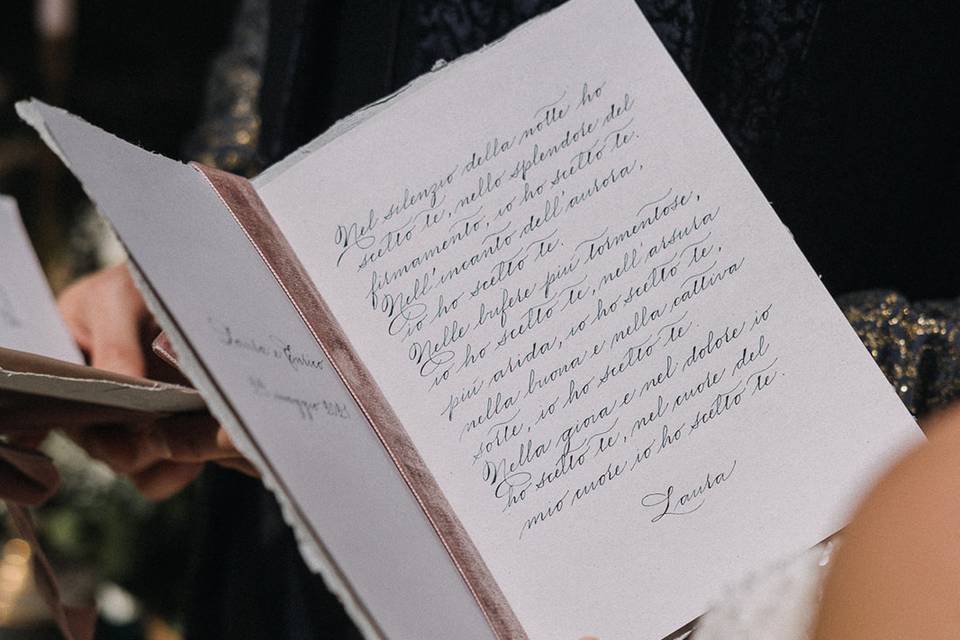 Laura e Enrico
maggio 2021
Nel silenzio della notte ho
scelto te, nello splendore del
firmamento, io ho scelto te.
Nell'incanto dell'aurora,
io ho scelto te.
Nelle bufere piú tormentose,
io ho scelto te, nell'arsura
piú arida, io ho scelto te,
nella buona e nella cattiva
sorte, io ho scelto te.
Nella gioia e nel dolore io
ho scelto te, nel cuore del
mio cuore io ho scelto te.
Laura